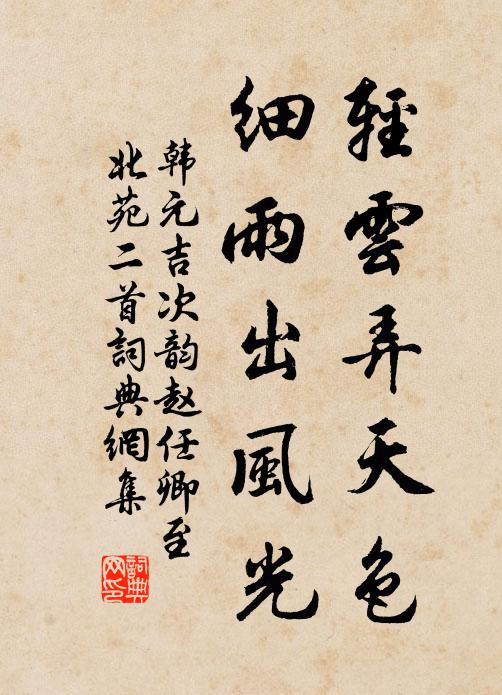 輕雲弄天色
細雨出風光
韩元吉次韵赵任卿至
北苑二首詞典網集
詞典
网印